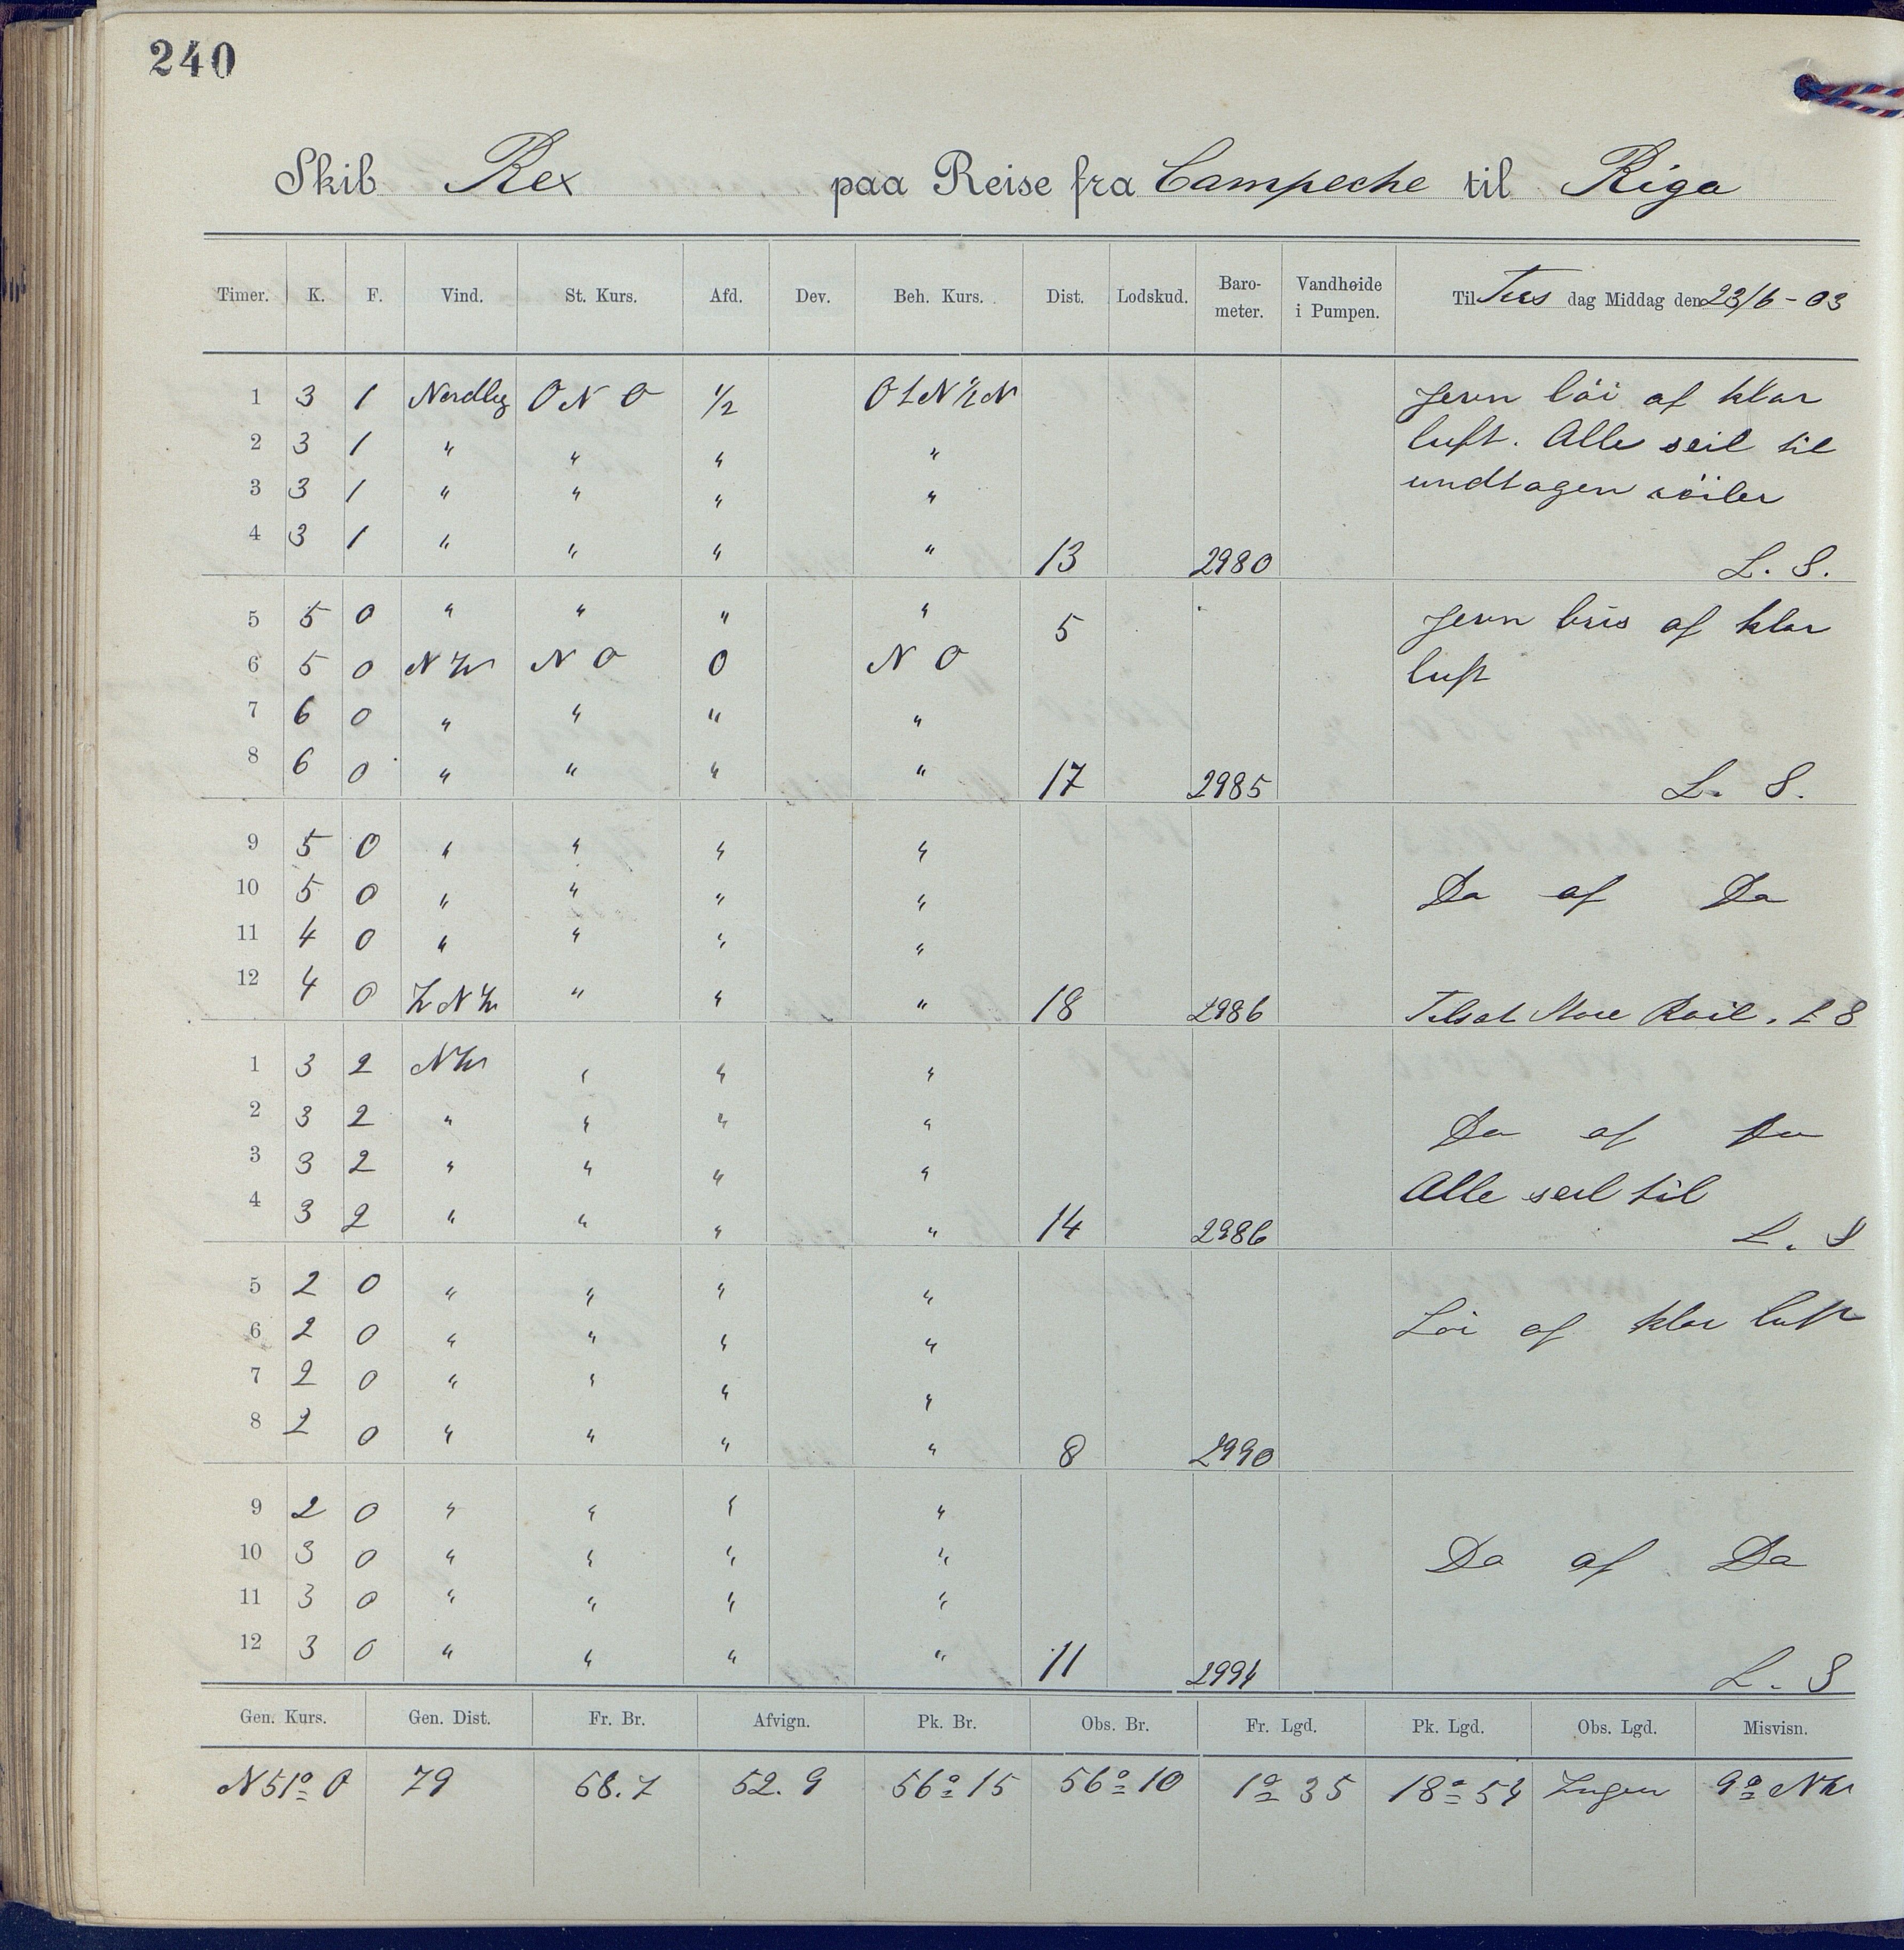 240
Skib Rex paa Reise fra Campeche til Riga
Timer. K. F. Vind. St. Kurs. Afd. Dev. Beh. Kurs. Dist. Lodskud. Baro-meter. Vandhøide i Pumpen. Til Tirs dag Middag den 23/6-03
1 3 1 Nordleg O N O 1/2 O t N 1/2 N Jevn löi af klar
2 3 1 " " " " luft. Alle seil til
3 3 1 " " " " undtagen röiler
4 3 1 " " " " 13 2980 L. S.
5 5 0 " " " " 5 Jevn bris af klar
6 5 0 N W N O 0 N O luft
7 6 0 " " " "
8 6 0 " " " " 17 2985 L. S.
9 5 0 " " " "
10 5 0 " " " " Do af Do
11 4 0 " " " "
12 4 0 W N W " " " 18 2986 Tilsat Store Roil. L S
1 3 2 N W " " "
2 3 2 " " " " Do af Do
3 3 2 " " " " Alle seil til
4 3 2 " " " " 14 2986 L. S
5 2 0 " " " "
6 2 0 " " " " Löi af klar luft
7 2 0 " " " "
8 2 0 " " " " 8 2990
9 2 0 " " " "
10 3 0 " " " " Do af Do
11 3 0 " " " "
12 3 0 " " " " 11 2994 L. S
Gen. Kurs. Gen. Dist. Fr. Br. Afvign. Pk. Br. Obs. Br. Fr. Lgd. Pk. Lgd. Obs. Lgd. Misvisn.
N 51° O 79 58.7 52.9 56° 15 56° 10 1° 35 18° 54 Ingen 9° N W